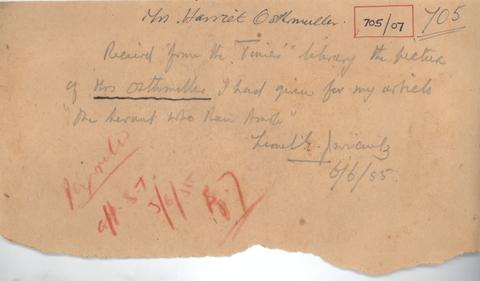 Mrs. Harriet Osthmuller. 705/07 705
Received from the "Times" library the picture
of Mrs Osthmuller I had given for my article
"The Servant who Ran Amok"
Lionel
6/6/55.
5/6/55